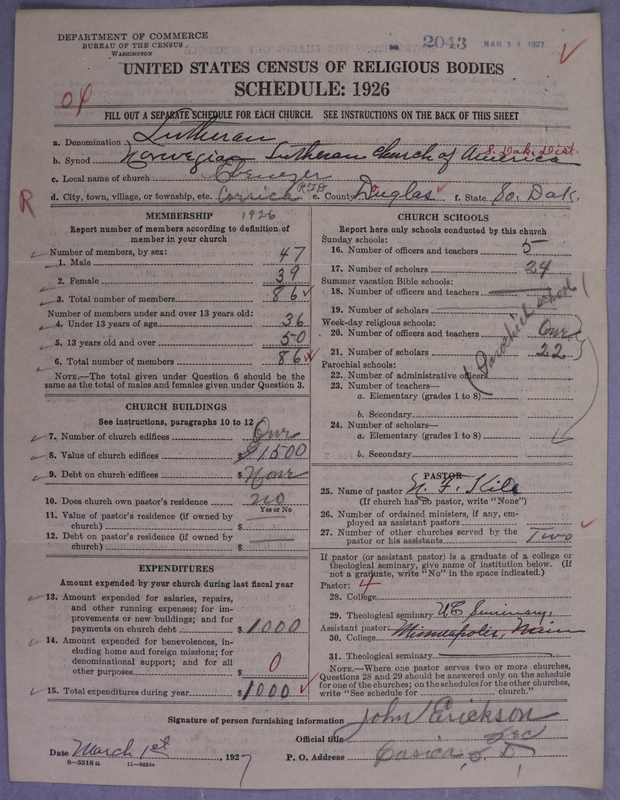 DEPARTMENT OF COMMERCE
BUREAU OF THE CENSUS
WASHINGTON
2043
MAR 1927
UNITED STATES CENSUS OF RELIGIOUS BODIES
SCHEDULE: 1926
04
FILL OUT A SEPARATE SCHEDULE FOR EACH CHURCH. SEE INSTRUCTIONS ON THE BACK OF THIS SHEET
a. Denomination Lutheran
b. Synod Norwegian Lutheran Church of America S. Dak. Dist.
c. Local name of church Ebenezer
d. City, town, village, or township, etc. Corsica RFD e. County Douglas f. State So. Dak.
R
MEMBERSHIP 1926
Report number of members according to definition of
member in your church
Number of members, by sex:
1. Male 47
2. Female 39
3. Total number of members 86
Number of members under and over 13 years old:
4. Under 13 years of age 36
5. 13 years old and over 50
6. Total number of members 86
NOTE.—The total given under Question 6 should be the
same as the total of males and females given under Question 3.
CHURCH BUILDINGS
See instructions, paragraphs 10 to 12
7. Number of church edifices One
8. Value of church edifices $1500
9. Debt on church edifices $ None
10. Does church own pastor's residence no
Yes or No
11. Value of pastor's residence (if owned by
church) $
12. Debt on pastor's residence (if owned by
church) $
EXPENDITURES
Amount expended by your church during last fiscal year
13. Amount expended for salaries, repairs,
and other running expenses; for im-
provements or new buildings; and for
payments on church debt $ 1000
14. Amount expended for benevolences, in-
cluding home and foreign missions; for
denominational support; and for all
other purposes $ 0
15. Total expenditures during year $ 1000
CHURCH SCHOOLS
Report here only schools conducted by this church
Sunday schools:
16. Number of officers and teachers 5
17. Number of scholars 24
Summer vacation Bible schools:
18. Number of officers and teachers
19. Number of scholars
Week-day religious schools:
20. Number of officers and teachers One
21. Number of scholars 22
(Parochial school)
Parochial schools:
22. Number of administrative officers
23. Number of teachers—
a. Elementary (grades 1 to 8)
b. Secondary
24. Number of scholars—
a. Elementary (grades 1 to 8)
b. Secondary
PASTOR
25. Name of pastor N. F.
(If church has no pastor, write "None")
26. Number of ordained ministers, if any, em-
ployed as assistant pastors
27. Number of other churches served by the
pastor or his assistants Two
If pastor (or assistant pastor) is a graduate of a college or
theological seminary, give name of institution below. (If
not a graduate, write "No" in the space indicated.)
Pastor: 4
28. College
29. Theological seminary U.C. Seminary,
Assistant pastor: Minneapolis, Minn
30. College
31. Theological seminary
NOTE.—Where one pastor serves two or more churches,
Questions 28 and 29 should be answered only on the schedule
for one of the churches; on the schedules for the other churches,
write "See schedule for church."
Signature of person furnishing information John Erickson
Official title Sec
Date March 1st, 1927 P. O. Address Corsica, S. D.
8—5518a 11—9224a